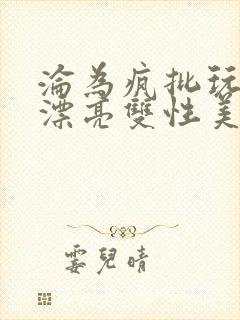 淪為瘋批玩
漂亮雙性美
霎兒晴